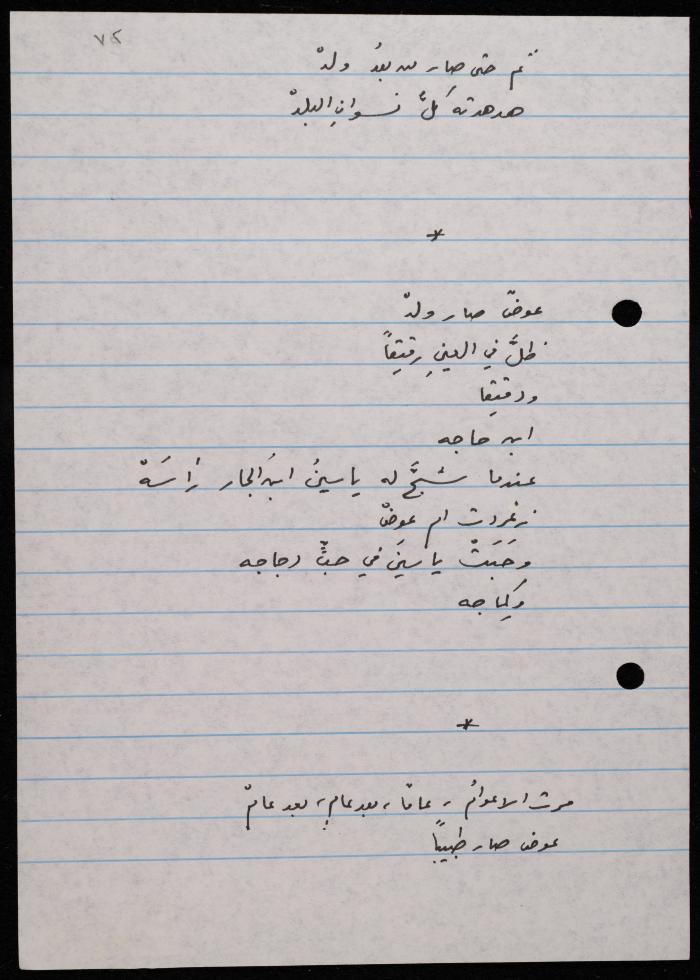 ٧٢
ثم حتى صار من بعدُ ولدْ
هدهدته كلُّ نسوانِ البلدْ
*
عوضٌ صار ولدْ
ظلَّ في العينِ رقيقاً
ودقيقا
ابن حاجه
عندما شجَّ له ياسينُ ابنُ الجار رأسَهْ
زغردت ام عوضْ
وحَبَتْ ياسينَ في حبٍّ دجاجه
وكماجه
*
مرت الاعوامُ، عامًا، بعد عامٍ، بعد عامْ
عوض صار طبيباً